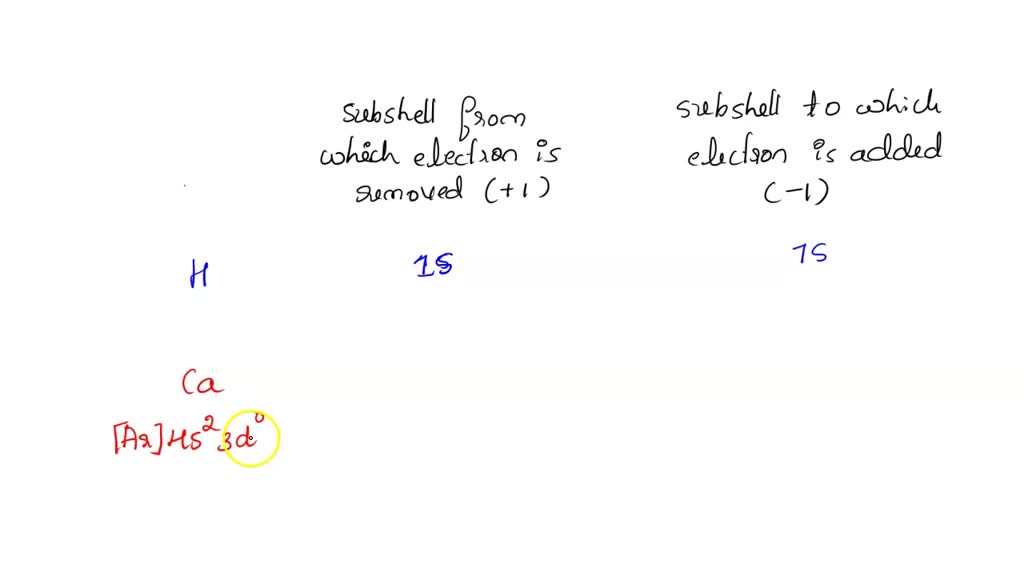 subshell from
which electron is
removed (+1)
subshell to which
electron is added
(-1)
H 1S 1S
Ca
[Ar]4s² 3d⁰